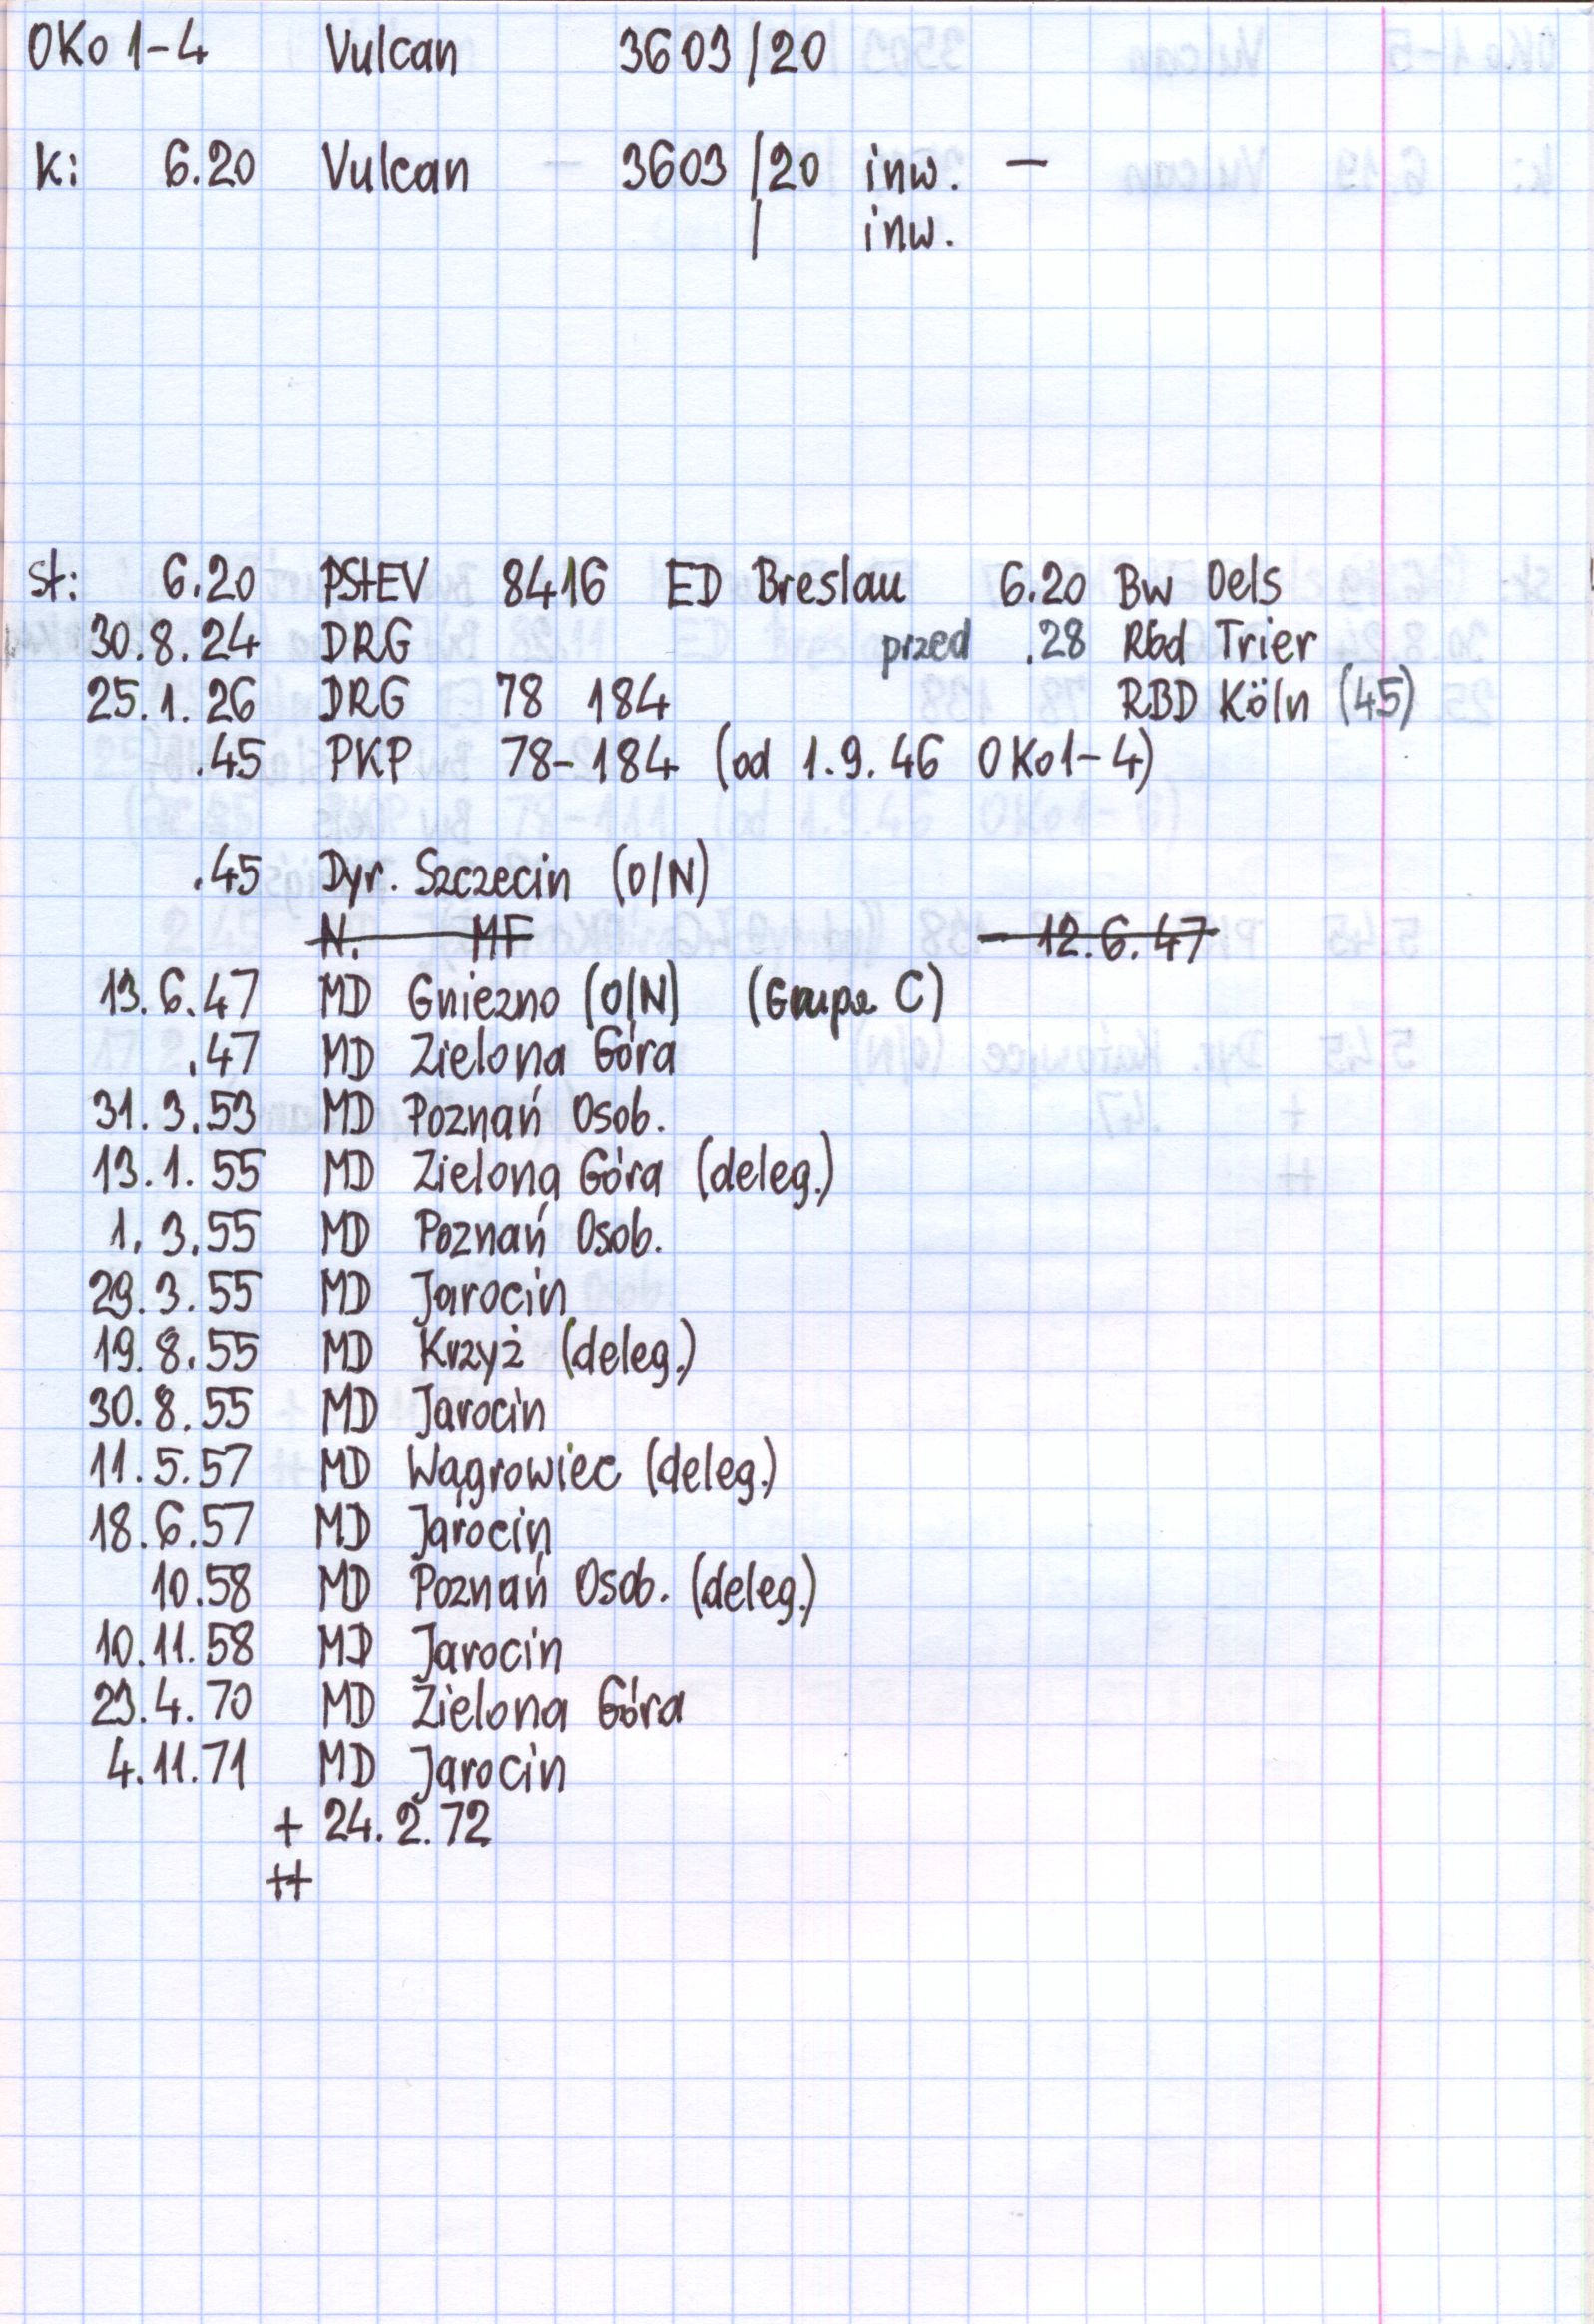 OKo 1-4 Vulcan 3603/20
k: 6.20 Vulcan 3603/20 inw. -
/ inw.
st: 6.20 PStEV 8416 ED Breslau 6.20 Bw Oels
30.8.24 DRG przed .28 Rbd Trier
25.1.26 DRG 78 184 RBD Köln (45)
.45 PKP 78-184 (od 1.9.46 OKo1-4)
.45 Dyr. Szczecin (O/N)
N. MF - 12.6.47
13.6.47 MD Gniezno (O/N) (Grupa C)
.47 MD Zielona Góra
31.3.53 MD Poznań Osob.
13.1.55 MD Zielona Góra (deleg.)
1.3.55 MD Poznań Osob.
29.3.55 MD Jarocin
19.8.55 MD Krzyż (deleg.)
30.8.55 MD Jarocin
11.5.57 MD Wągrowiec (deleg.)
18.6.57 MD Jarocin
10.58 MD Poznań Osob. (deleg.)
10.11.58 MD Jarocin
23.4.70 MD Zielona Góra
4.11.71 MD Jarocin
+ 24.2.72
++